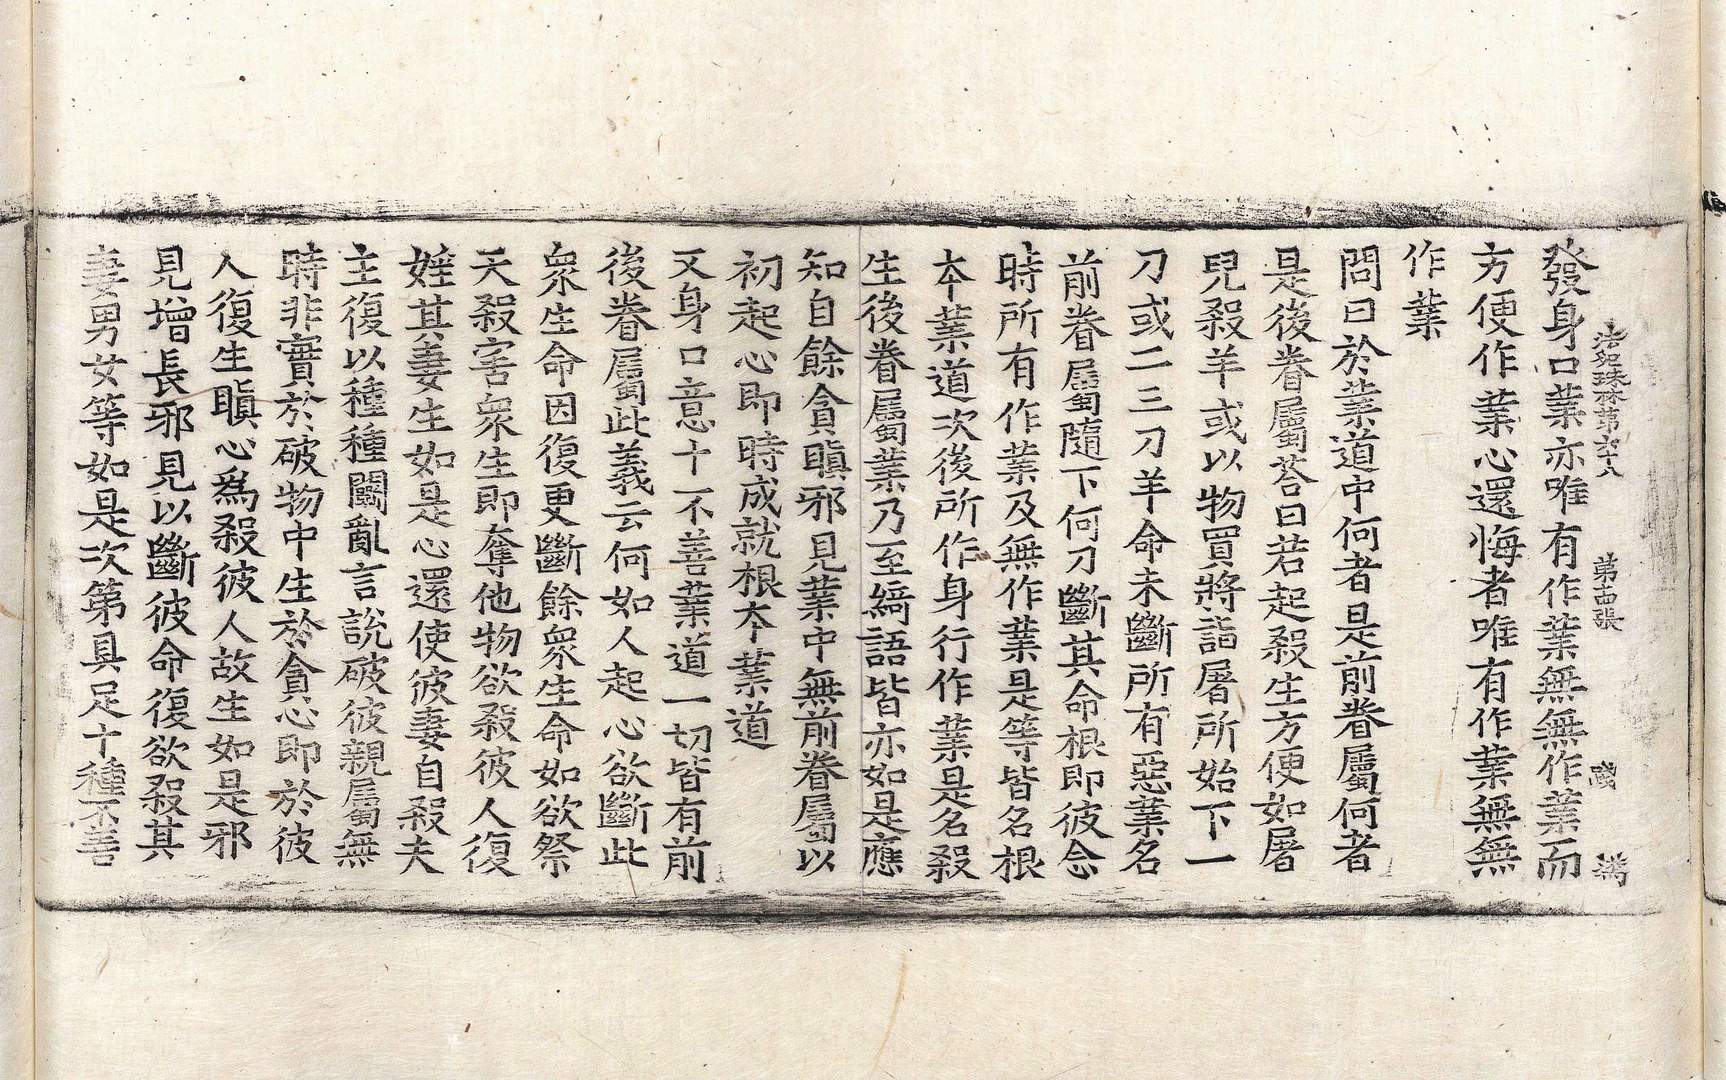 法苑珠林第六十八　第四張　𢦙　㵢
發身口業亦唯有作業無無作業而
方便作業心還悔者唯有作業無無
作業
問曰於業道中何者是前眷屬何者
是後眷屬荅曰若起殺生方便如屠
兒殺羊或以物買將詣屠所始下一
刀或二三刀羊命未斷所有惡業名
前眷屬隨下何刀斷其命根即彼念
時所有作業及無作業是等皆名根
本業道次後所作身行作業是名殺
生後眷屬業乃至綺語皆亦如是應
知自餘貪瞋邪見業中無前眷屬以
初起心即時成就根本業道
又身口意十不善業道一切皆有前
後眷屬此義云何如人起心欲斷此
衆生命因復更斷餘衆生命如欲祭
天殺害衆生即奪他物欲殺彼人復
婬其妻生如是心還使彼妻自殺夫
主復以種種鬭亂言說破彼親屬無
時非實於破物中生於貪心即於彼
人復生瞋心為殺彼人故生如是邪
見增長邪見以斷彼命復欲殺其
妻男女等如是次第具足十種不善